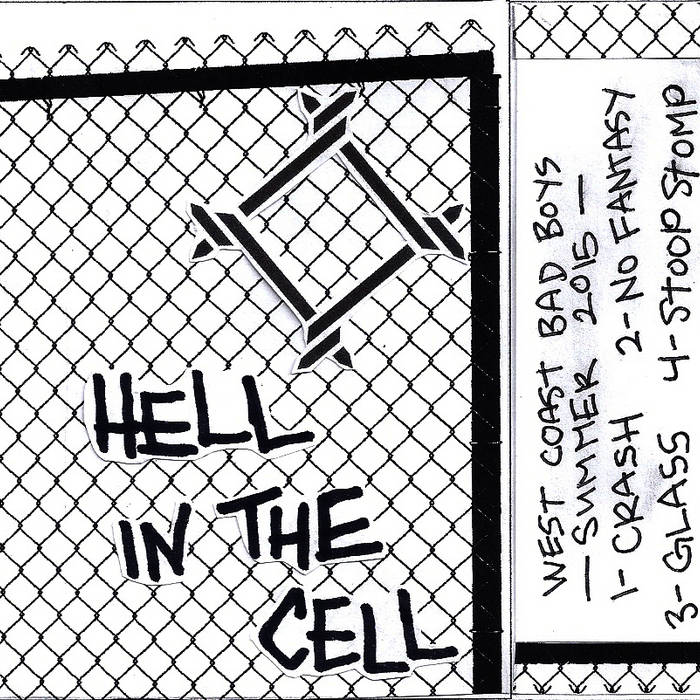 HELL
IN THE
CELL
WEST COAST BAD BOYS
— SUMMER 2015 —
1- CRASH 2- NO FANTASY
3- GLASS 4- STOOP STOMP